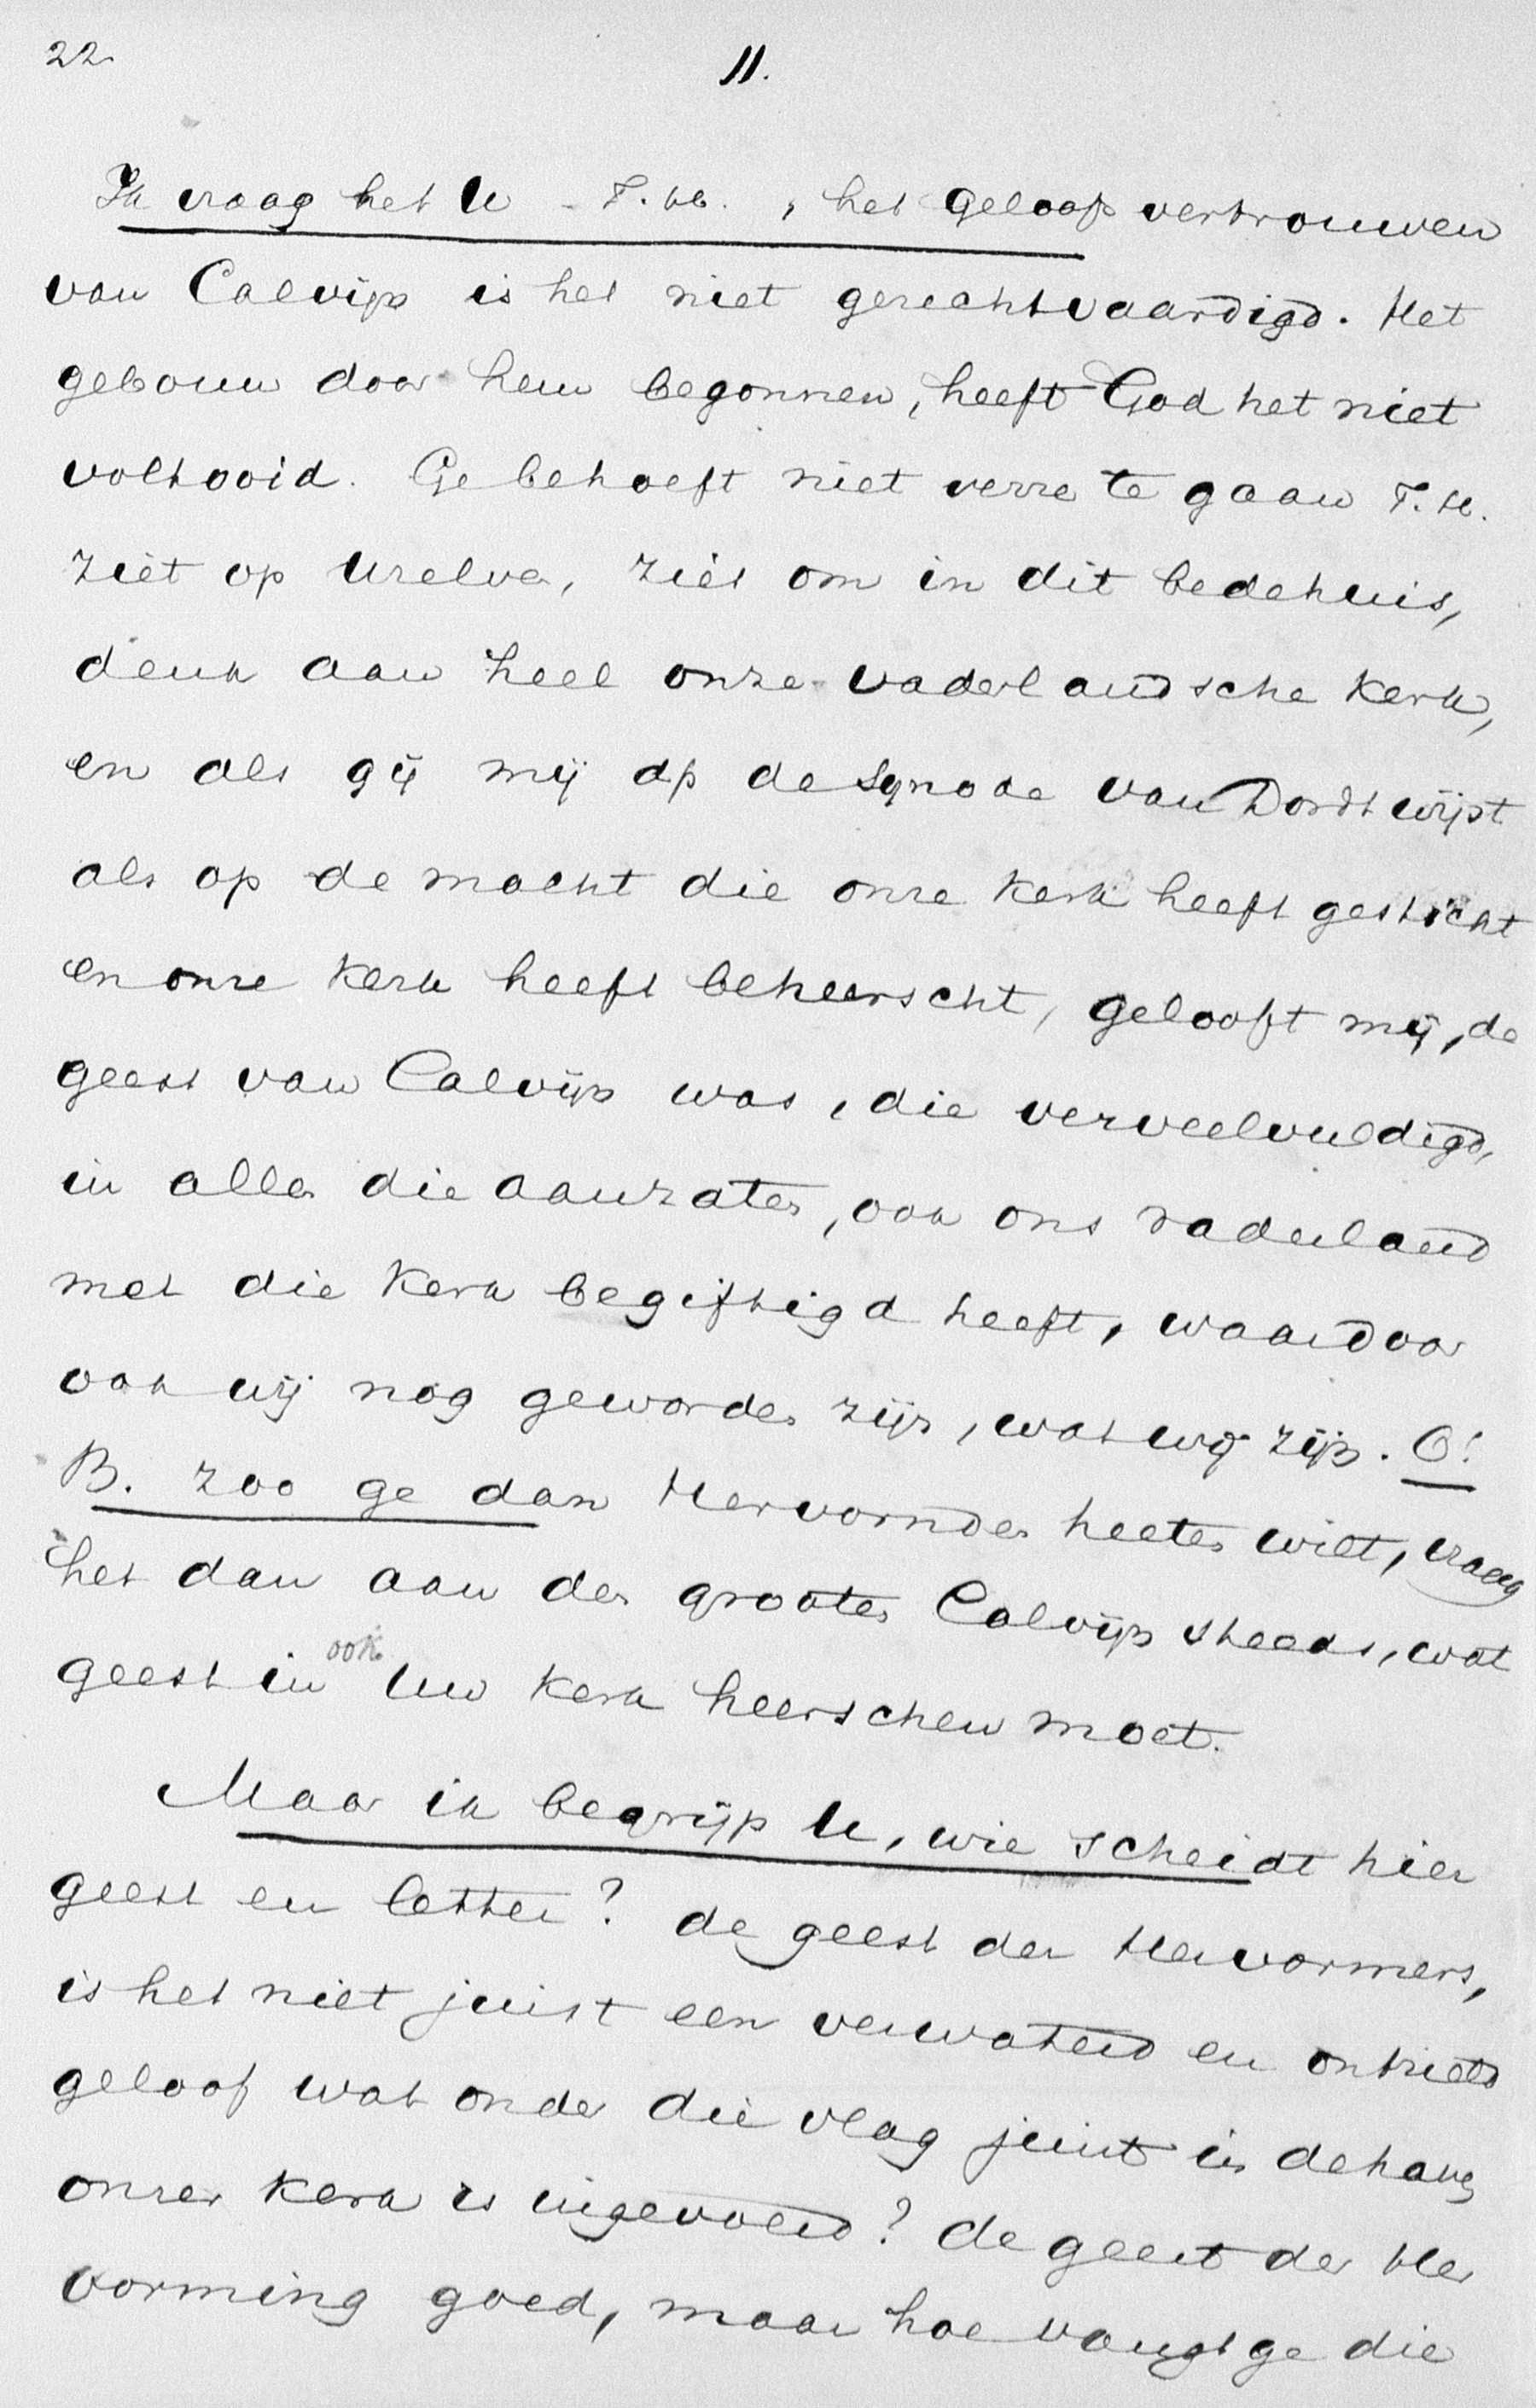 22.
11.
Ik vraag het U - T. H. , het geloofsvertrouwen
van Calvijn is het niet gerechtvaardigd. Het
gebouw door hem begonnen, heeft God het niet
voltooid. Ge behoeft niet verre te gaan T. H.
ziet op Uzelve, ziet om in dit bedehuis,
denk aan heel onze vaderlandsche kerk,
en als gij mij op de Synode van Dordt wijst
als op de macht die onze kerk heeft gesticht
en onze kerk heeft beheerscht, gelooft mij, de
geest van Calvijn was, die verveelvuldigd,
in allen die aanzaten, ook ons vaderland
met die kerk begiftigd heeft, waardoor
ook wij nog geworden zijn, wat wij zijn. O!
B. zoo ge dan Hervormden heeten wilt, vraag
het dan aan den grooten Calvijn steeds, wat
geest in ook Uw kerk heerschen moet.
Maar ik begrijp U, wie scheidt hier
geest en letter? de geest der Hervormers,
is het niet juist een verwaterd en ontzield
geloof wat onder die vlag juist in de haven
onzer kerk is ingevoerd? de geest der Her
vorming goed, maar hoe vangt ge die